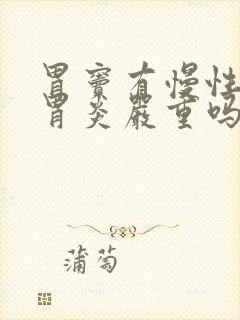 胃窦有慢性
胃炎严重吗
蒲萄